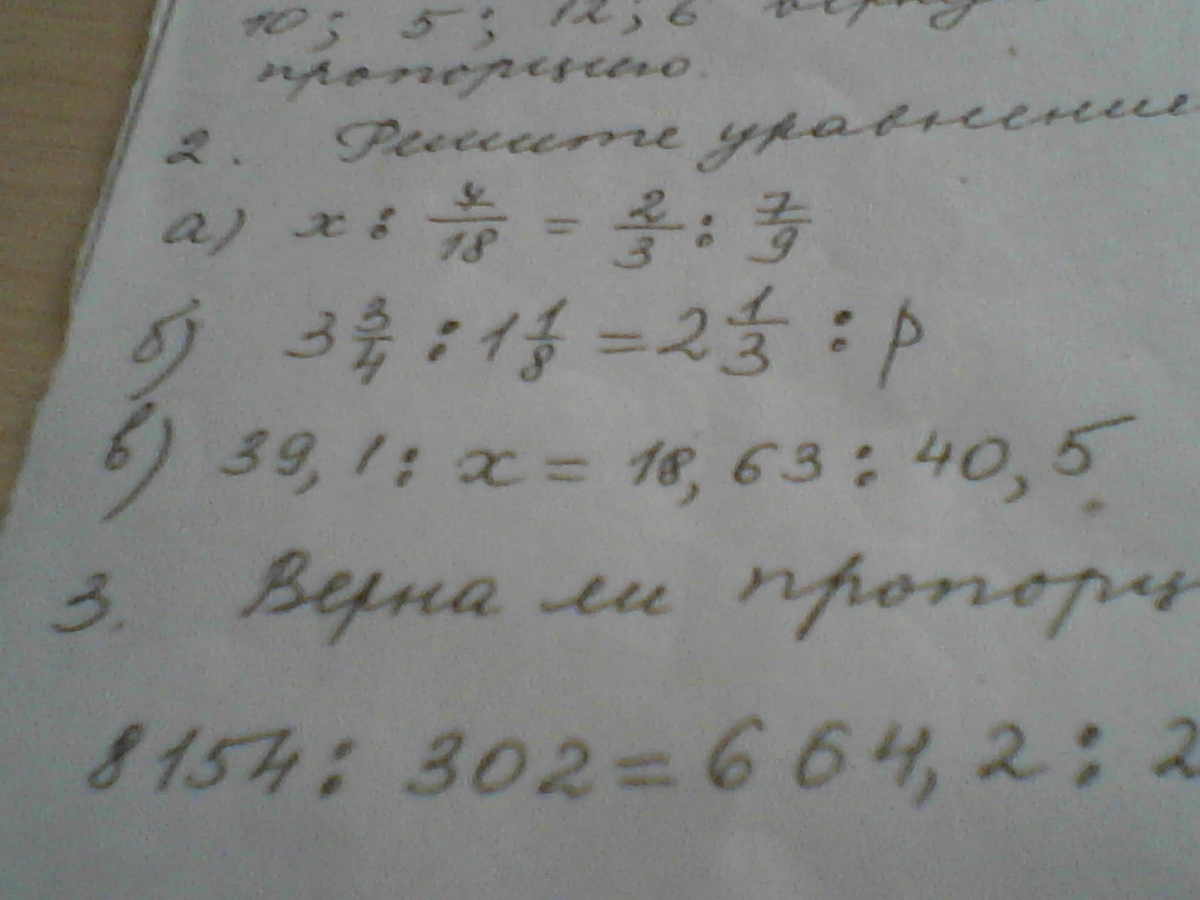 10; 5; 12; 6 верну
пропорцию.
2. Решите уравнение
а) x : 7/18 = 2/3 : 7/9
б) 3 3/4 : 1 1/8 = 2 1/3 : p
в) 39,1 : x = 18,63 : 40,5.
3. Верна ли пропорц
8154 : 302 = 664,2 : 2